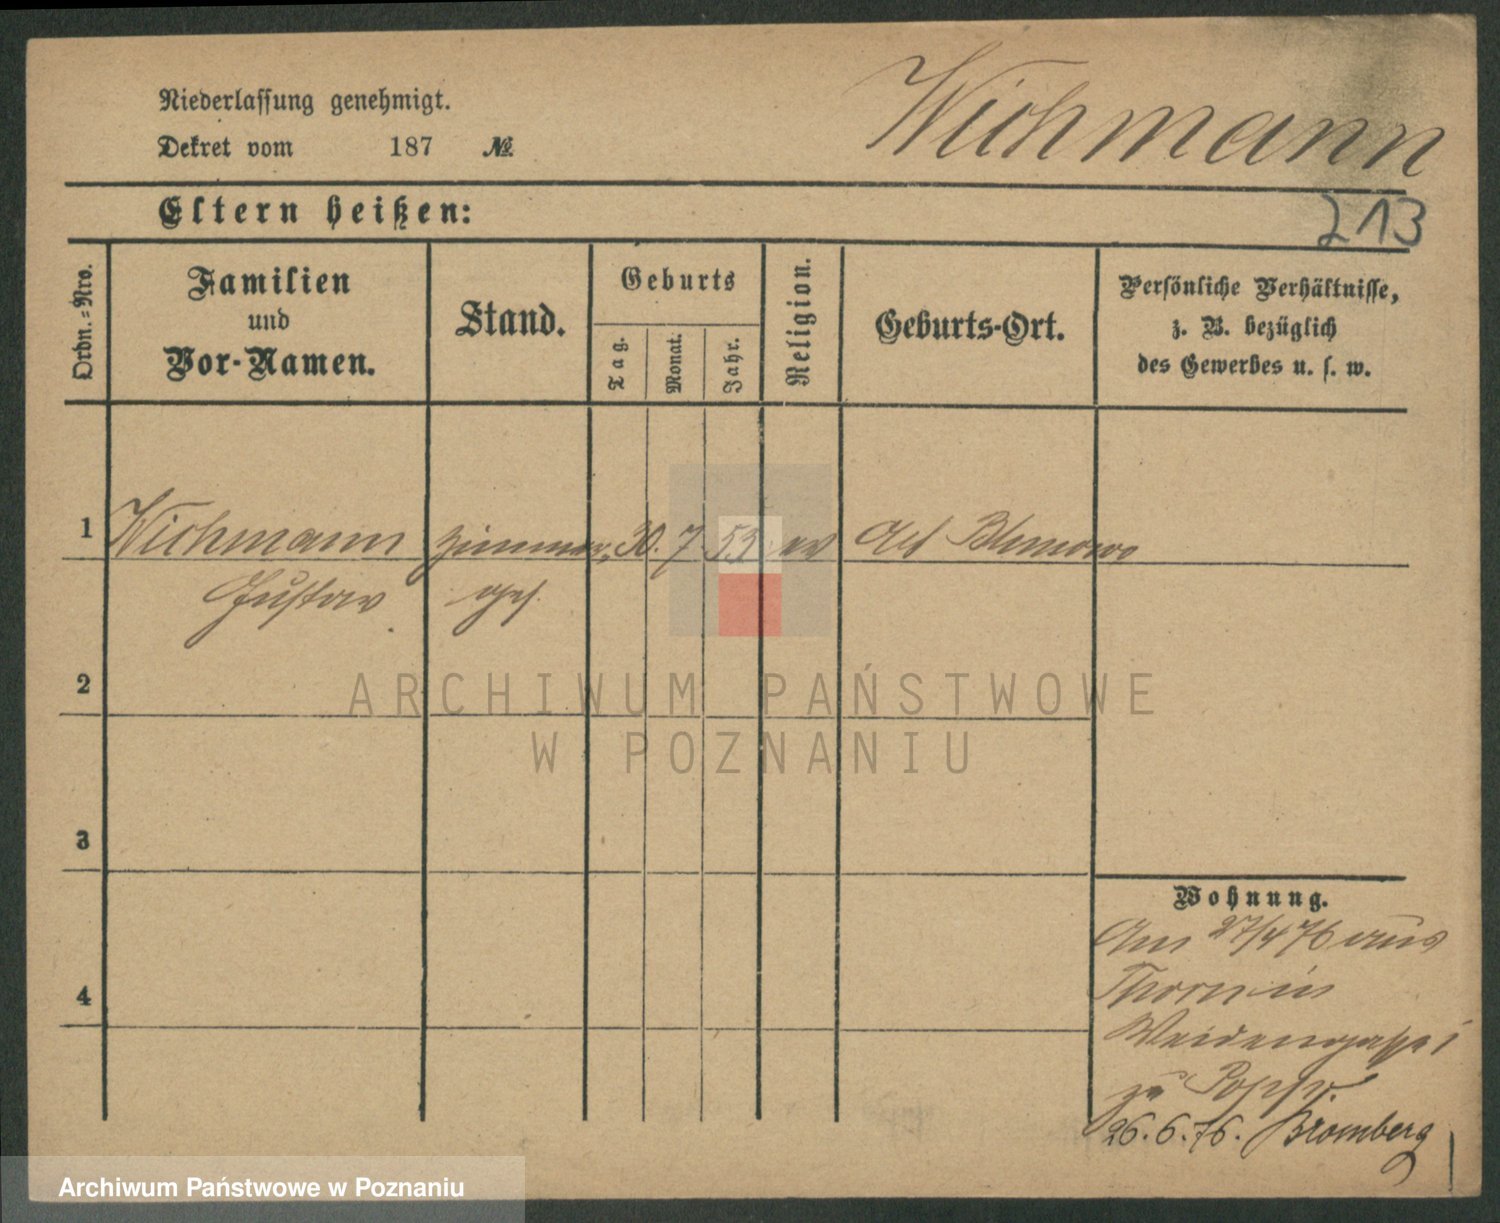 Niederlassung genehmigt.
Dekret vom 187 №
Wichmann
Eltern heißen:
213
Ordn.=Nro.
Familien
und
Vor-Namen.
Stand.
Geburts
Tag.
Monat.
Jahr.
Religion.
Geburts-Ort.
Persönliche Verhältnisse,
z. B. bezüglich
des Gewerbes u. s. w.
1 Wichmann Zimmer, 30. 7 53 ev
Gustav ges.
2
3
4
Wohnung.
Am 27/4 76 aus
Thorn in
Weidengasse 1
zu
26.6.76. Bromberg
ARCHIWUM PAŃSTWOWE
W POZNANIU
Archiwum Państwowe w Poznaniu